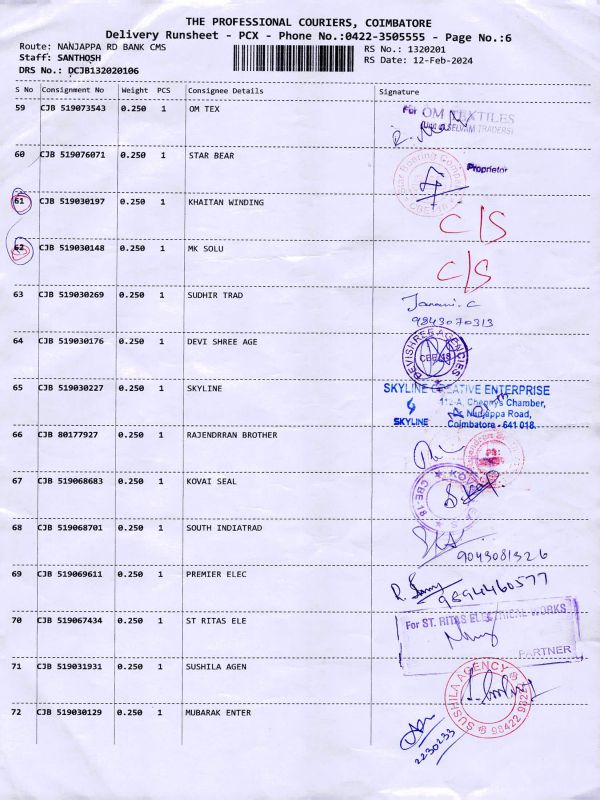 THE PROFESSIONAL COURIERS, COIMBATORE
Delivery Runsheet - PCX - Phone No.:0422-3505555 - Page No.:6
Route: NANJAPPA RD BANK CMS
RS No.: 1320201
Staff: SANTHOSH
RS Date: 12-Feb-2024
DRS No.: DCJB132020106
S No Consignment No Weight PCS Consignee Details Signature
59 CJB 519073543 0.250 1 OM TEX
For OM TEXTILES
(Unit of SELVAM TRADERS)
60 CJB 519076071 0.250 1 STAR BEAR
Proprietor
61 CJB 519030197 0.250 1 KHAITAN WINDING
C/S
62 CJB 519030148 0.250 1 MK SOLU
C/S
63 CJB 519030269 0.250 1 SUDHIR TRAD
Janani.C
9843070313
64 CJB 519030176 0.250 1 DEVI SHREE AGE
DEVISHREE AGENCIES
CBE-18
65 CJB 519030227 0.250 1 SKYLINE
SKYLINE CREATIVE ENTERPRISE
112-A, Chenny's Chamber,
Nanjappa Road,
SKYLINE Coimbatore - 641 018.
66 CJB 80177927 0.250 1 RAJENDRRAN BROTHER
67 CJB 519068683 0.250 1 KOVAI SEAL
KOVAI
CBE-18
68 CJB 519068701 0.250 1 SOUTH INDIATRAD
9043081326
69 CJB 519069611 0.250 1 PREMIER ELEC
9894460577
70 CJB 519067434 0.250 1 ST RITAS ELE
For ST. RITAS ELECTRICAL WORKS
PARTNER
71 CJB 519031931 0.250 1 SUSHILA AGEN
SUSHILA AGENCY
72 CJB 519030129 0.250 1 MUBARAK ENTER
2230233